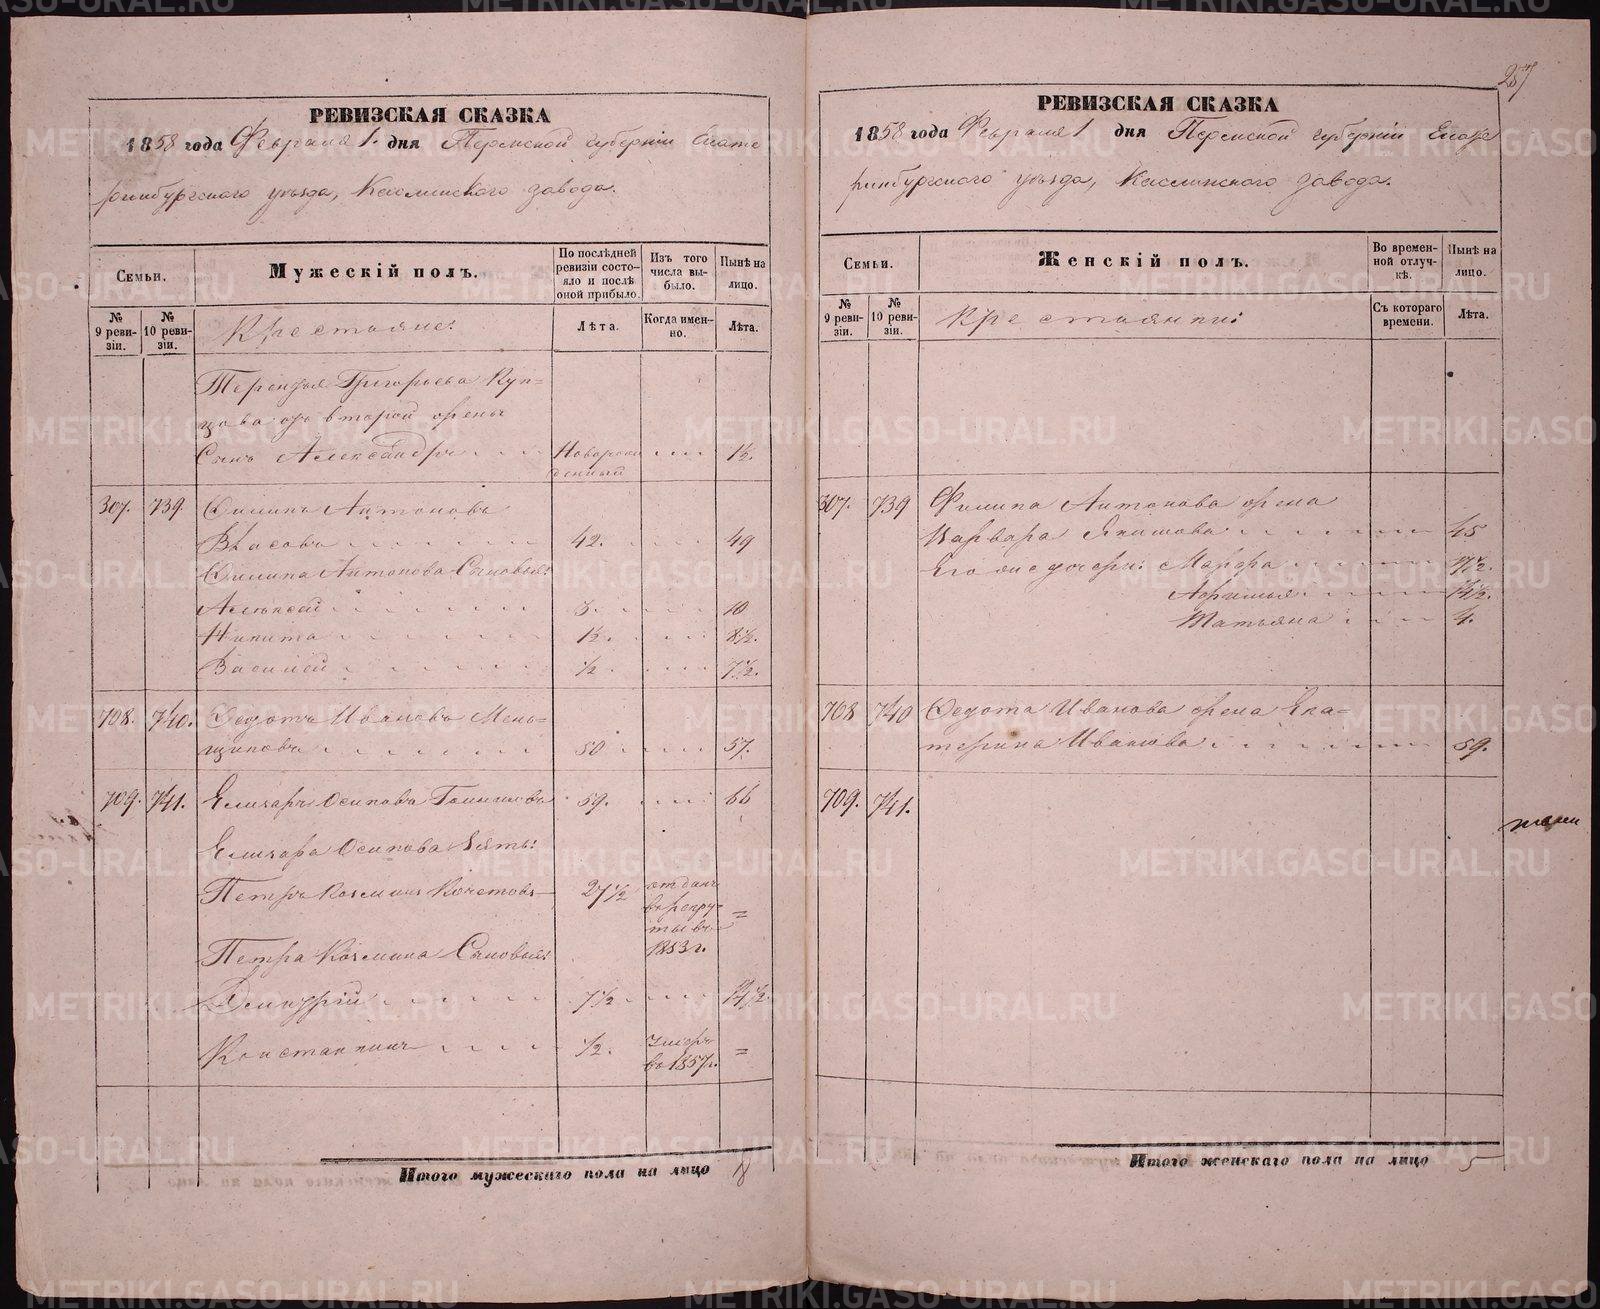 РЕВИЗСКАЯ СКАЗКА
1858 года Февраля 1. дня Пермской губернiи Екате
ринбургскаго уѣзда, Каслинскаго завода.
Семьи.
Мужескiй полъ.
По послѣдней ревизiи состояло и послѣ оной прибыло.
Изъ того числа выбыло.
Нынѣ на лицо.
№ 9 ревизiи.
№ 10 ревизiи.
Крестьяне:
Лѣта.
Когда именно.
Лѣта.
Терентья Григорьева Куп=
цова отъ второй жены
Сынъ Александръ Новорож денный 1½.
307. 739. Филипъ Антоновъ
Власовъ 42. 49
Филипа Антонова Сыновья:
Алексей 3. 10
Никита 1½. 8½.
Василей ½ 7½.
708. 740. Федотъ Ивановъ Мень=
щиковъ 50 57.
709. 741. Елизаръ Осиповъ 59. 66
Елизара Осипова Зять:
Петръ Козминъ Кочетовъ 27½ отданъ в рекруты въ 1853 г. =
Петра Козмина Сыновья:
Дмитрiй 7½ 14½.
Константинъ ½. Умеръ въ 1857 г. =
Итого мужескаго пола на лицо 8
257
РЕВИЗСКАЯ СКАЗКА
1858 года Февраля 1 дня Пермской губернiи Екате
ринбургскаго уѣзда, Каслинскаго завода.
Семьи.
Женскiй полъ.
Во временной отлучкѣ.
Нынѣ на лицо.
№ 9 ревизiи.
№ 10 ревизiи.
Крестьянки:
Съ котораго времени.
Лѣта.
307. 739 Филипа Антонова жена
Варвара Якимова 45
Его же дочери: Марфа 17½.
Афимья 14½.
Татьяна 4.
708 740 Федота Иванова жена Ека=
терина Иванова 59.
709. 741.
Итого женскаго пола на лицо 5
METRIKI.GASO-URAL.RU